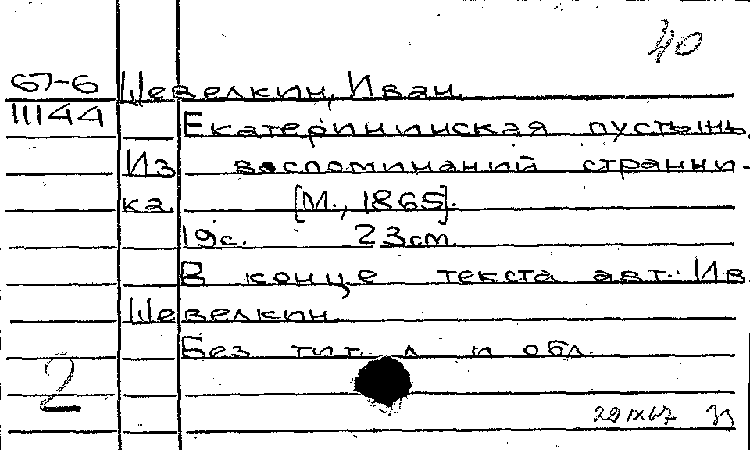 40
67-6 Шевелкин, Иван.
11144 Екатерининская пустынь.
Из воспоминаний странни-
ка. [М., 1865].
19с. 23см.
В конце текста авт.: Ив.
Шевелкин.
Без тит. л. и обл.
2
29 IX 67